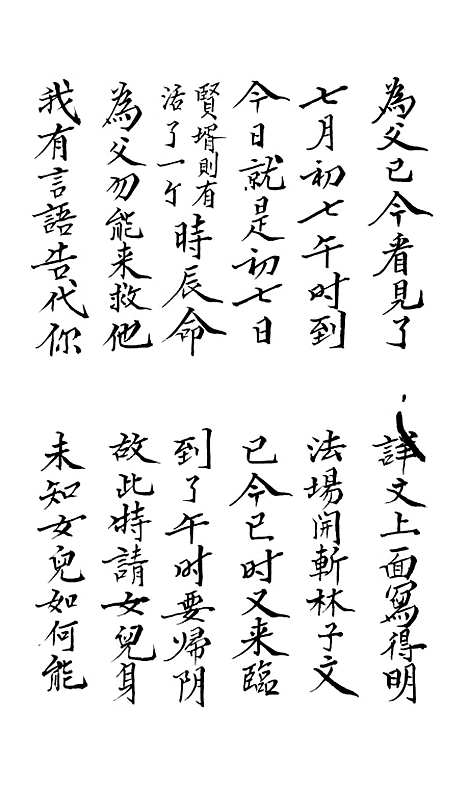 為父已今看見了
詳文上面寫得明
七月初七午时到
法場開斬林子文
今日就是初七日
已今已时又来臨
賢壻則有活了一个時辰命
到了午时要歸阴
為父勿能来救他
故此特請女兒身
我有言語告代你
未知女兒如何能